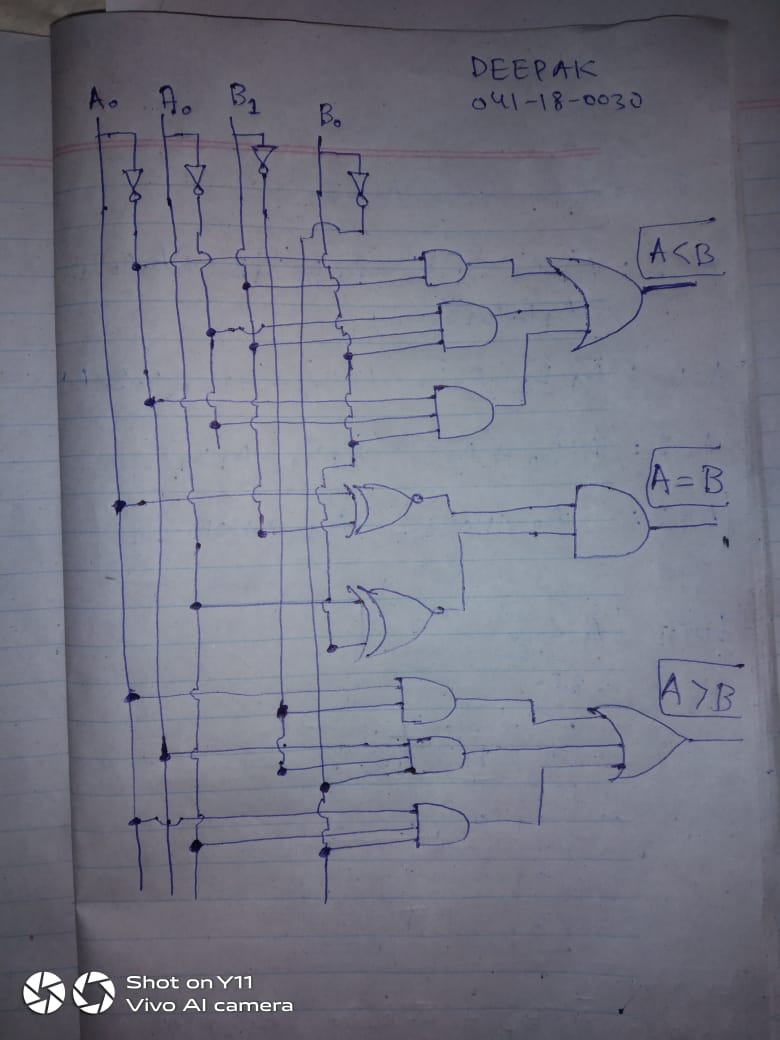 DEEPAK
041-18-0030
A₀ A₀ B₁ B₀
A<B
A=B
A>B
Shot on Y11
Vivo AI camera